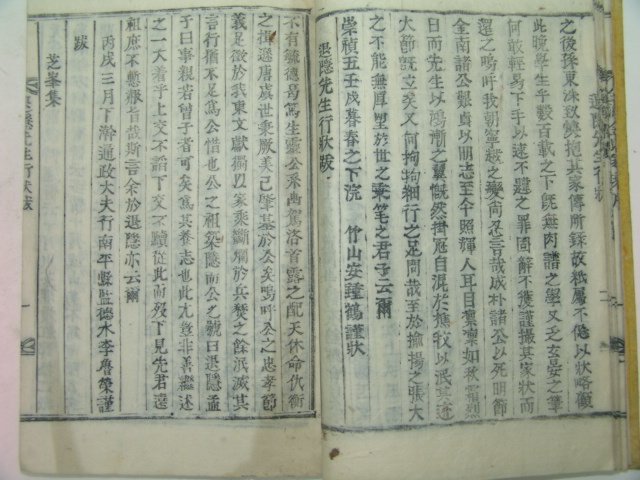 之後孫東洙致燮抱其家傳所錄故楓屬不佞以狀略顧
此晩學生乎數百載之下旣無肉譜之學又乏玄晏之筆
何敢輕易下手以速不韙之罪固辭不獲謹撮其家狀而
還之嗚呼我朝寧越之變尙忍言哉成朴諸公以死明節
全南諸公艱貞以明志至今照輝人耳目凜凜如秋霜烈
日而先生以鴻漸之翼慨然掛冠自混於樵牧以泯其迹
大節旣立矣又何拘拘細行之足問哉至於揄揚之張大
之不能無厚望於世之秉筆之君子云爾
崇禎五壬戌暮春之下浣 竹山安鍾鶴謹狀
退隱先生行狀跋
不有毓德曷篤生靈公釆幽駕洛首露之配天休命伉衡
之揖遜唐虞世秉厥美已肇基於公矣嗚呼公之忠孝節
義足徵於我東文獻獨以家乘斷爛於兵燹之餘泯滅其
言行猶不足爲公惜也公之祖染隱而公之號曰退隱孟
子曰事親若曾子者可矣爲其養志也此尤豈非善繼述
之一大着乎上交不諂下交不瀆從此而歿下見先君遠
祖庶不慙赧旨哉斯言余於退隱亦云爾
丙戌三月下澣通政大夫行南平縣監德水李魯榮謹
跋
芝峯集
退隱先生行狀跋
退隱先生行狀